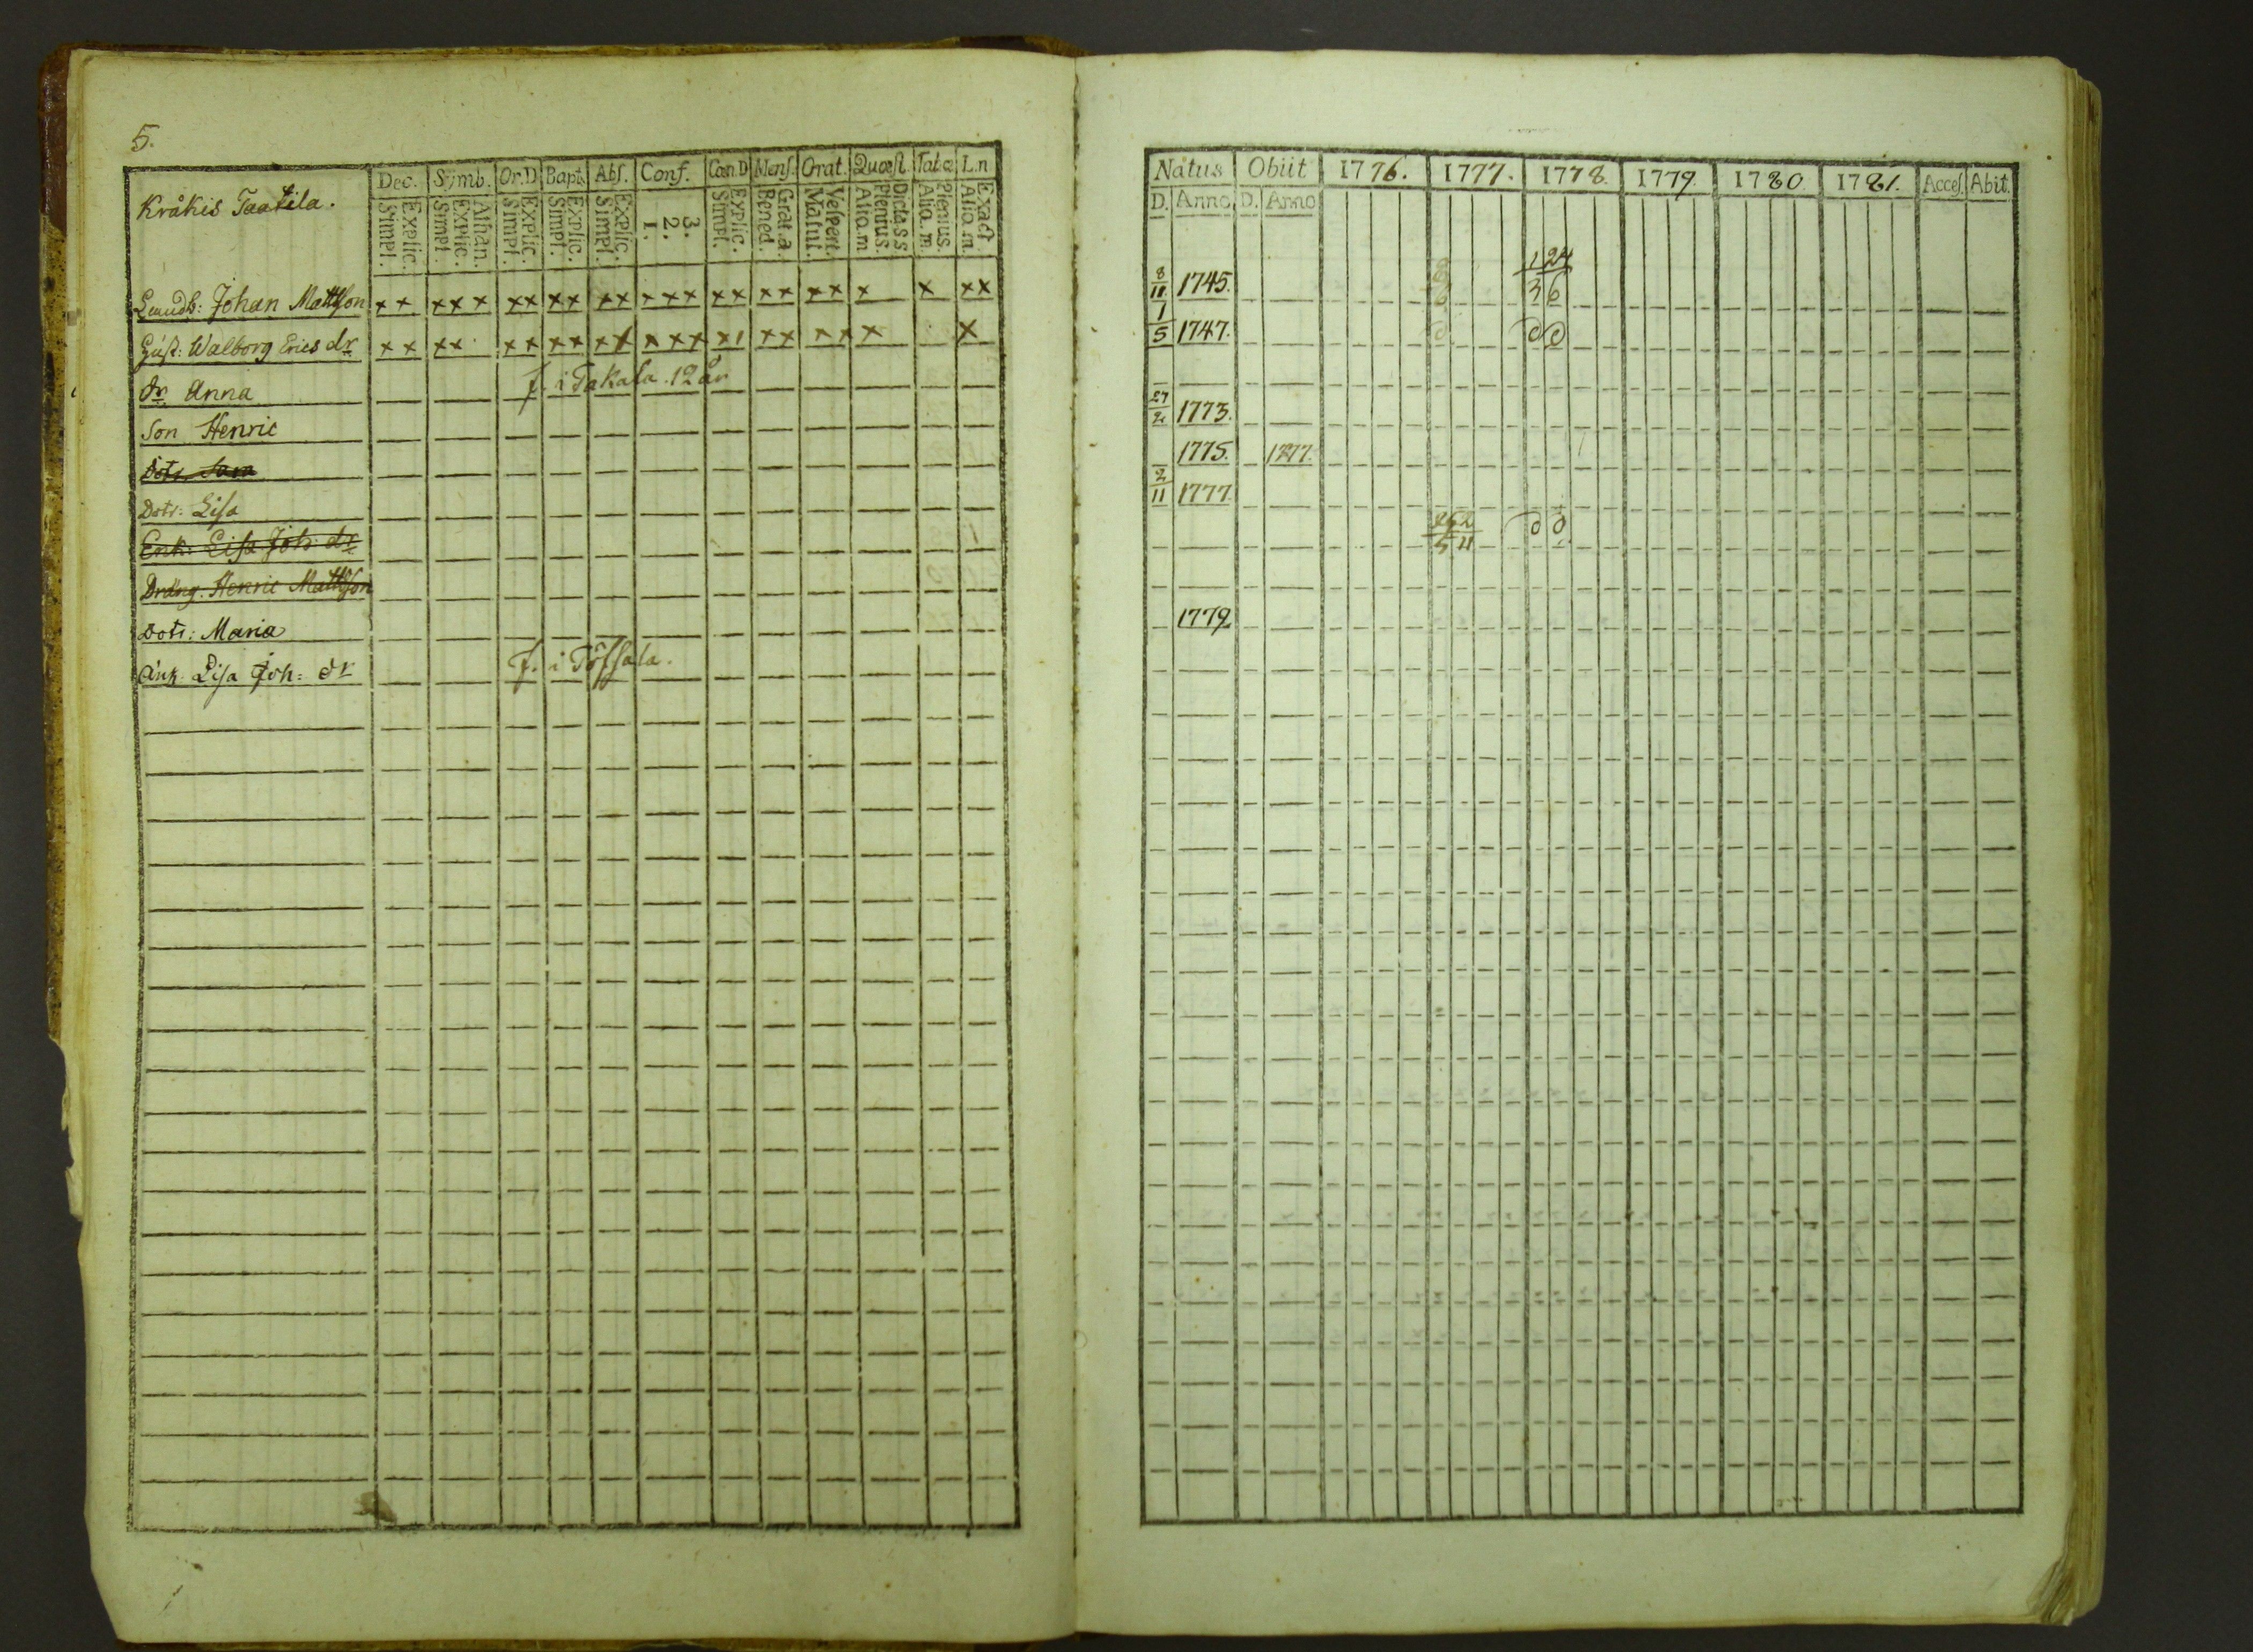 5.
Kråkis Taatila.
Dec. Symb. Or.D. Bapt. Abs. Conf. Cœn.D. Mens. Orat. Quæst. Tabæ L.n
Simpl. Explic. Simpl. Explic. Athan. Simpl. Explic. Simpl. Explic. Simpl. Explic. 1. 2. 3. Simpl. Explic. Bened. Grat.a. Matut. Vespert. Alio.m Plenius. Dicta S S Alio.m. Plenius. Alio m. Exact
Landb: Johan Mattsson x x x x x x x x x x x x x x x x x x x x x x x x
Hust: Walborg Erics dr x x x x x x x x x x x x x x x x x x x x
dr Anna f. i Takala 12 år
Son Henric
Dotr. Sara
Dotr: Lisa
Enk: Lisa Joh: dr
Dräng. Henric Mattsson
Dotr: Maria
Änk. Lisa Joh: dr f. i Töfsala.
Natus Obiit 1776. 1777. 1778. 1779. 1780 1781. Acces. Abit.
D. Anno D. Anno
8/11 1745. 1 24 / 3 6
1/5 1747.
27/2 1773.
1775. 1777.
2/11 1777.
1779